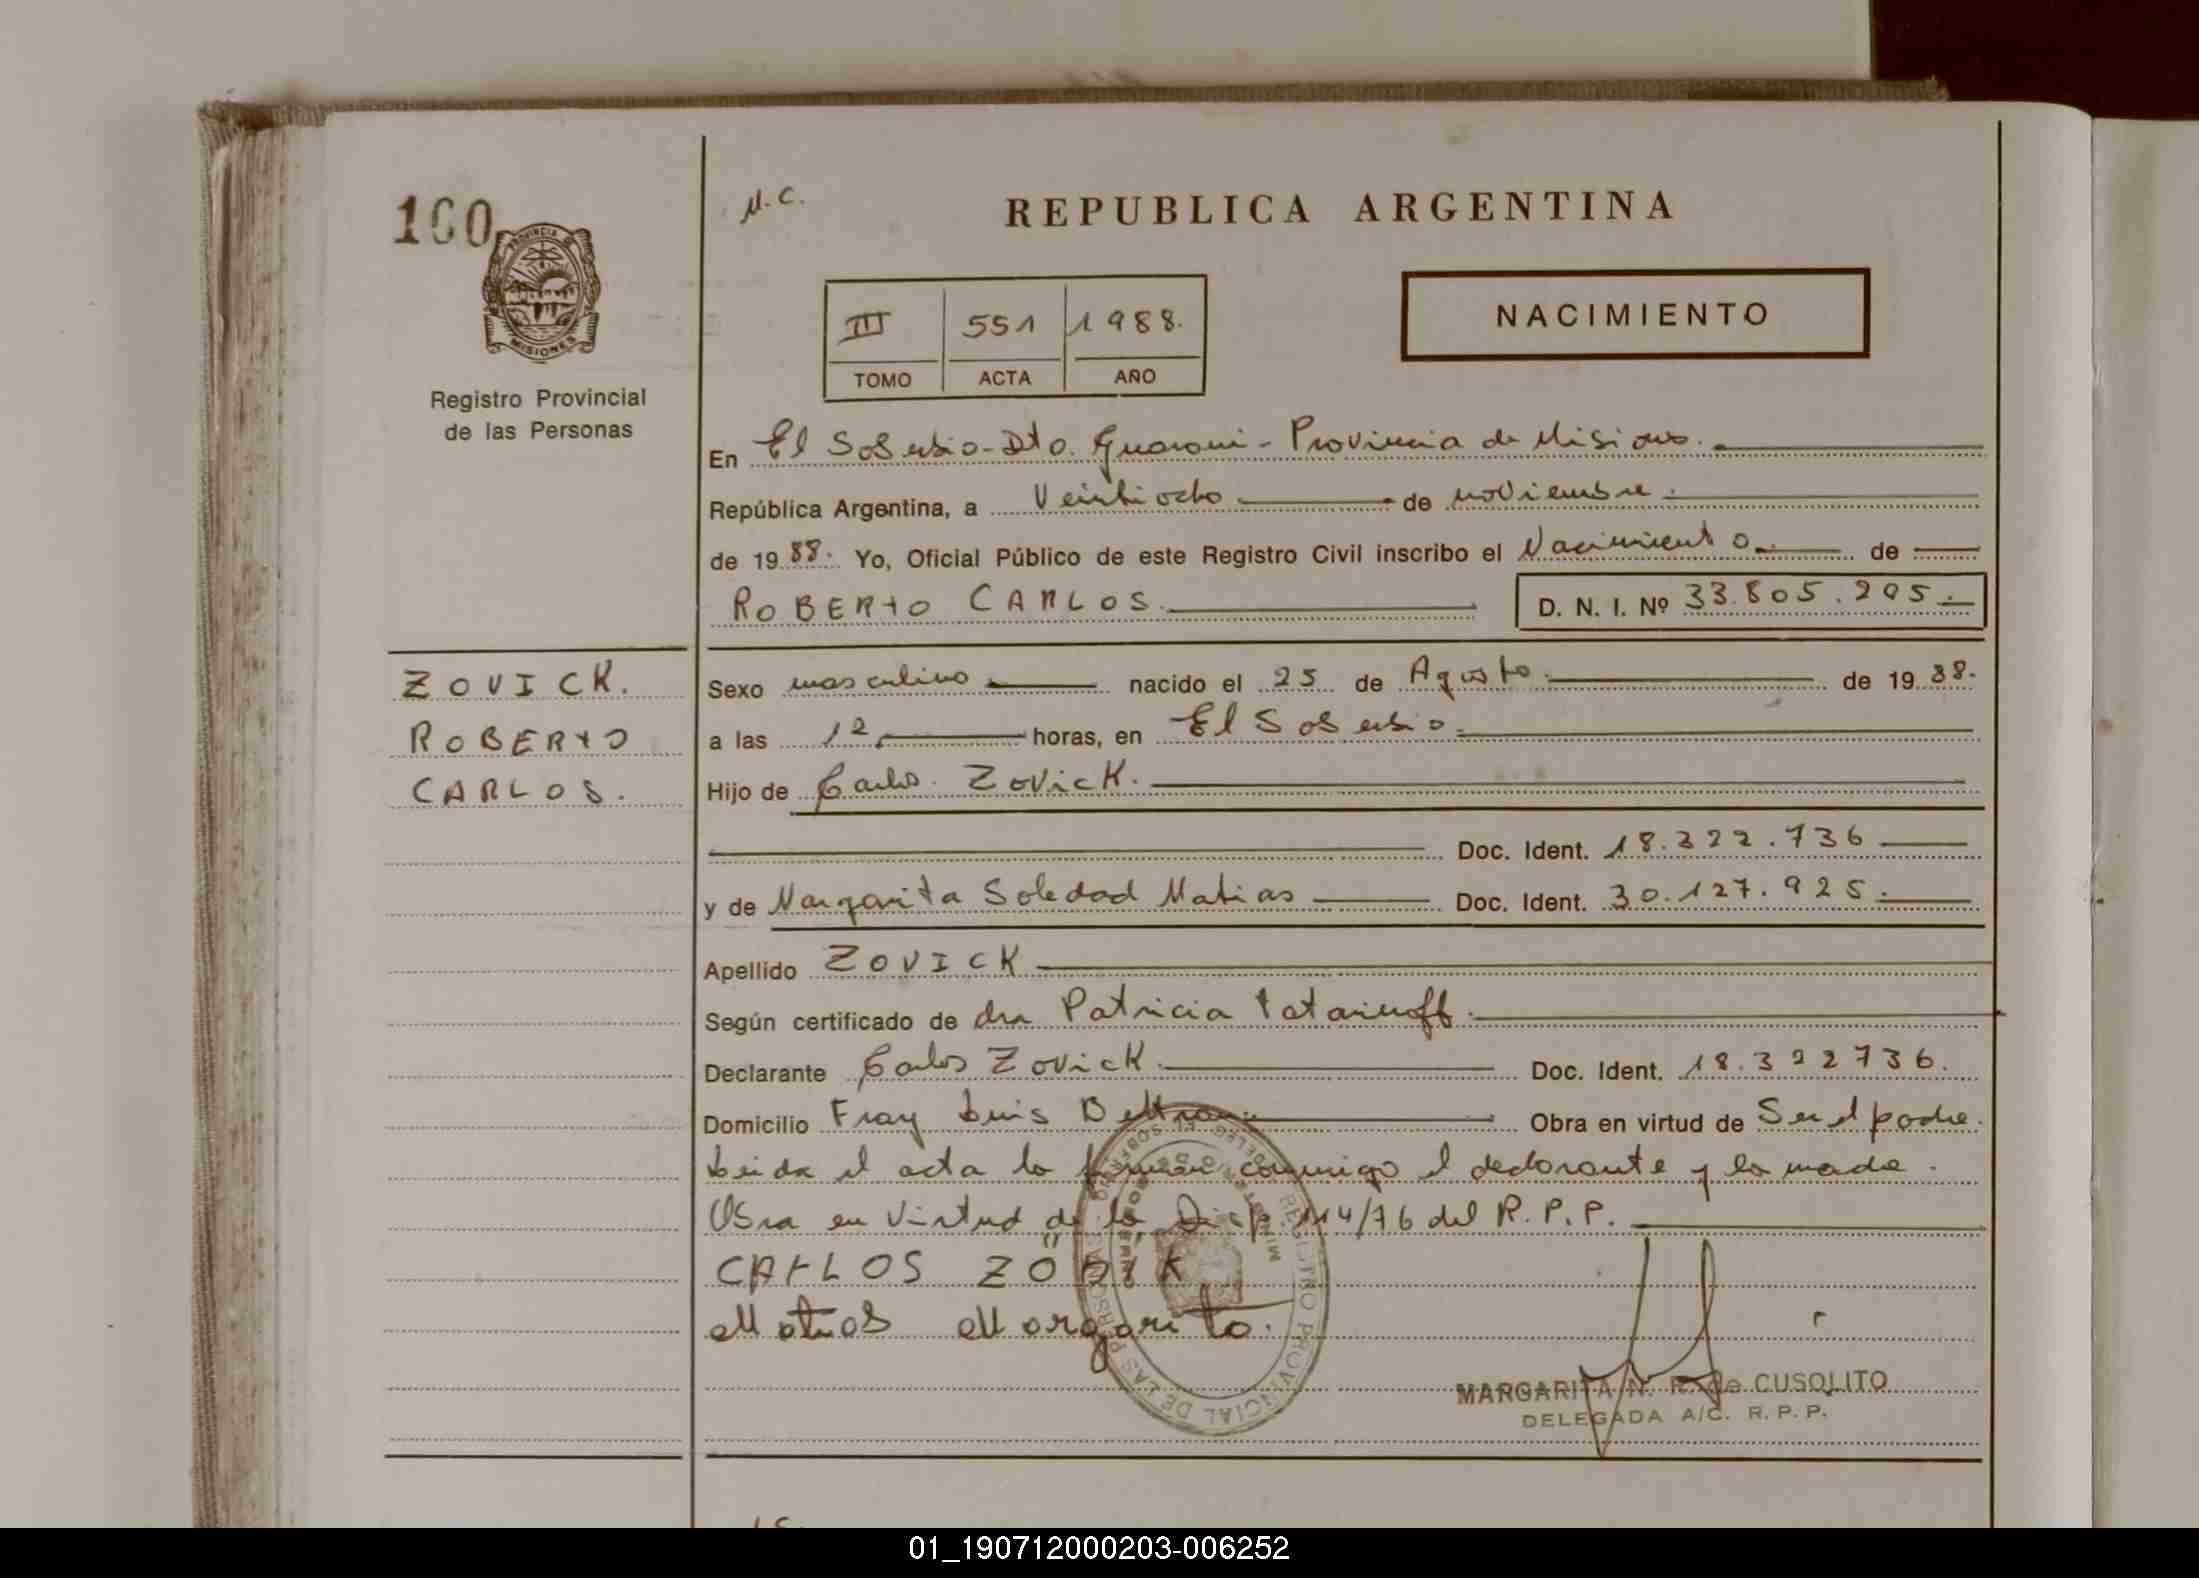 100
PROVINCIA DE
MISIONES
Registro Provincial
de las Personas
M.C.
REPUBLICA ARGENTINA
III 551 1988.
TOMO ACTA AÑO
NACIMIENTO
En El Soberbio-Dto. Guarani-Provincia de Misiones.
República Argentina, a Veintiocho de noviembre.
de 19 88. Yo, Oficial Público de este Registro Civil inscribo el Nacimiento de
ROBERTO CARLOS. D. N. I. Nº 33.805.295.
ZOVICK.
ROBERTO
CARLOS.
Sexo masculino nacido el 25 de Agosto de 19 88.
a las 12 horas, en El Soberbio
Hijo de Carlos Zovick.
Doc. Ident. 18.322.736
y de Margarita Soledad Matias Doc. Ident. 30.127.925.
Apellido ZOVICK
Según certificado de dra Patricia Tatarinoff.
Declarante Carlos Zovick. Doc. Ident. 18.322736.
Domicilio Fray Luis Beltran. Obra en virtud de Ser el padre.
Leida el acta la firman conmigo el declarante y la madre.
Obra en virtud de la Disp 114/76 del R.P.P.
CARLOS
Matias Margarita.
REGISTRO PROVINCIAL DE LAS PERSONAS
MARGARITA N. R. de CUSOLITO
DELEGADA A/C. R. P. P.
01_190712000203-006252